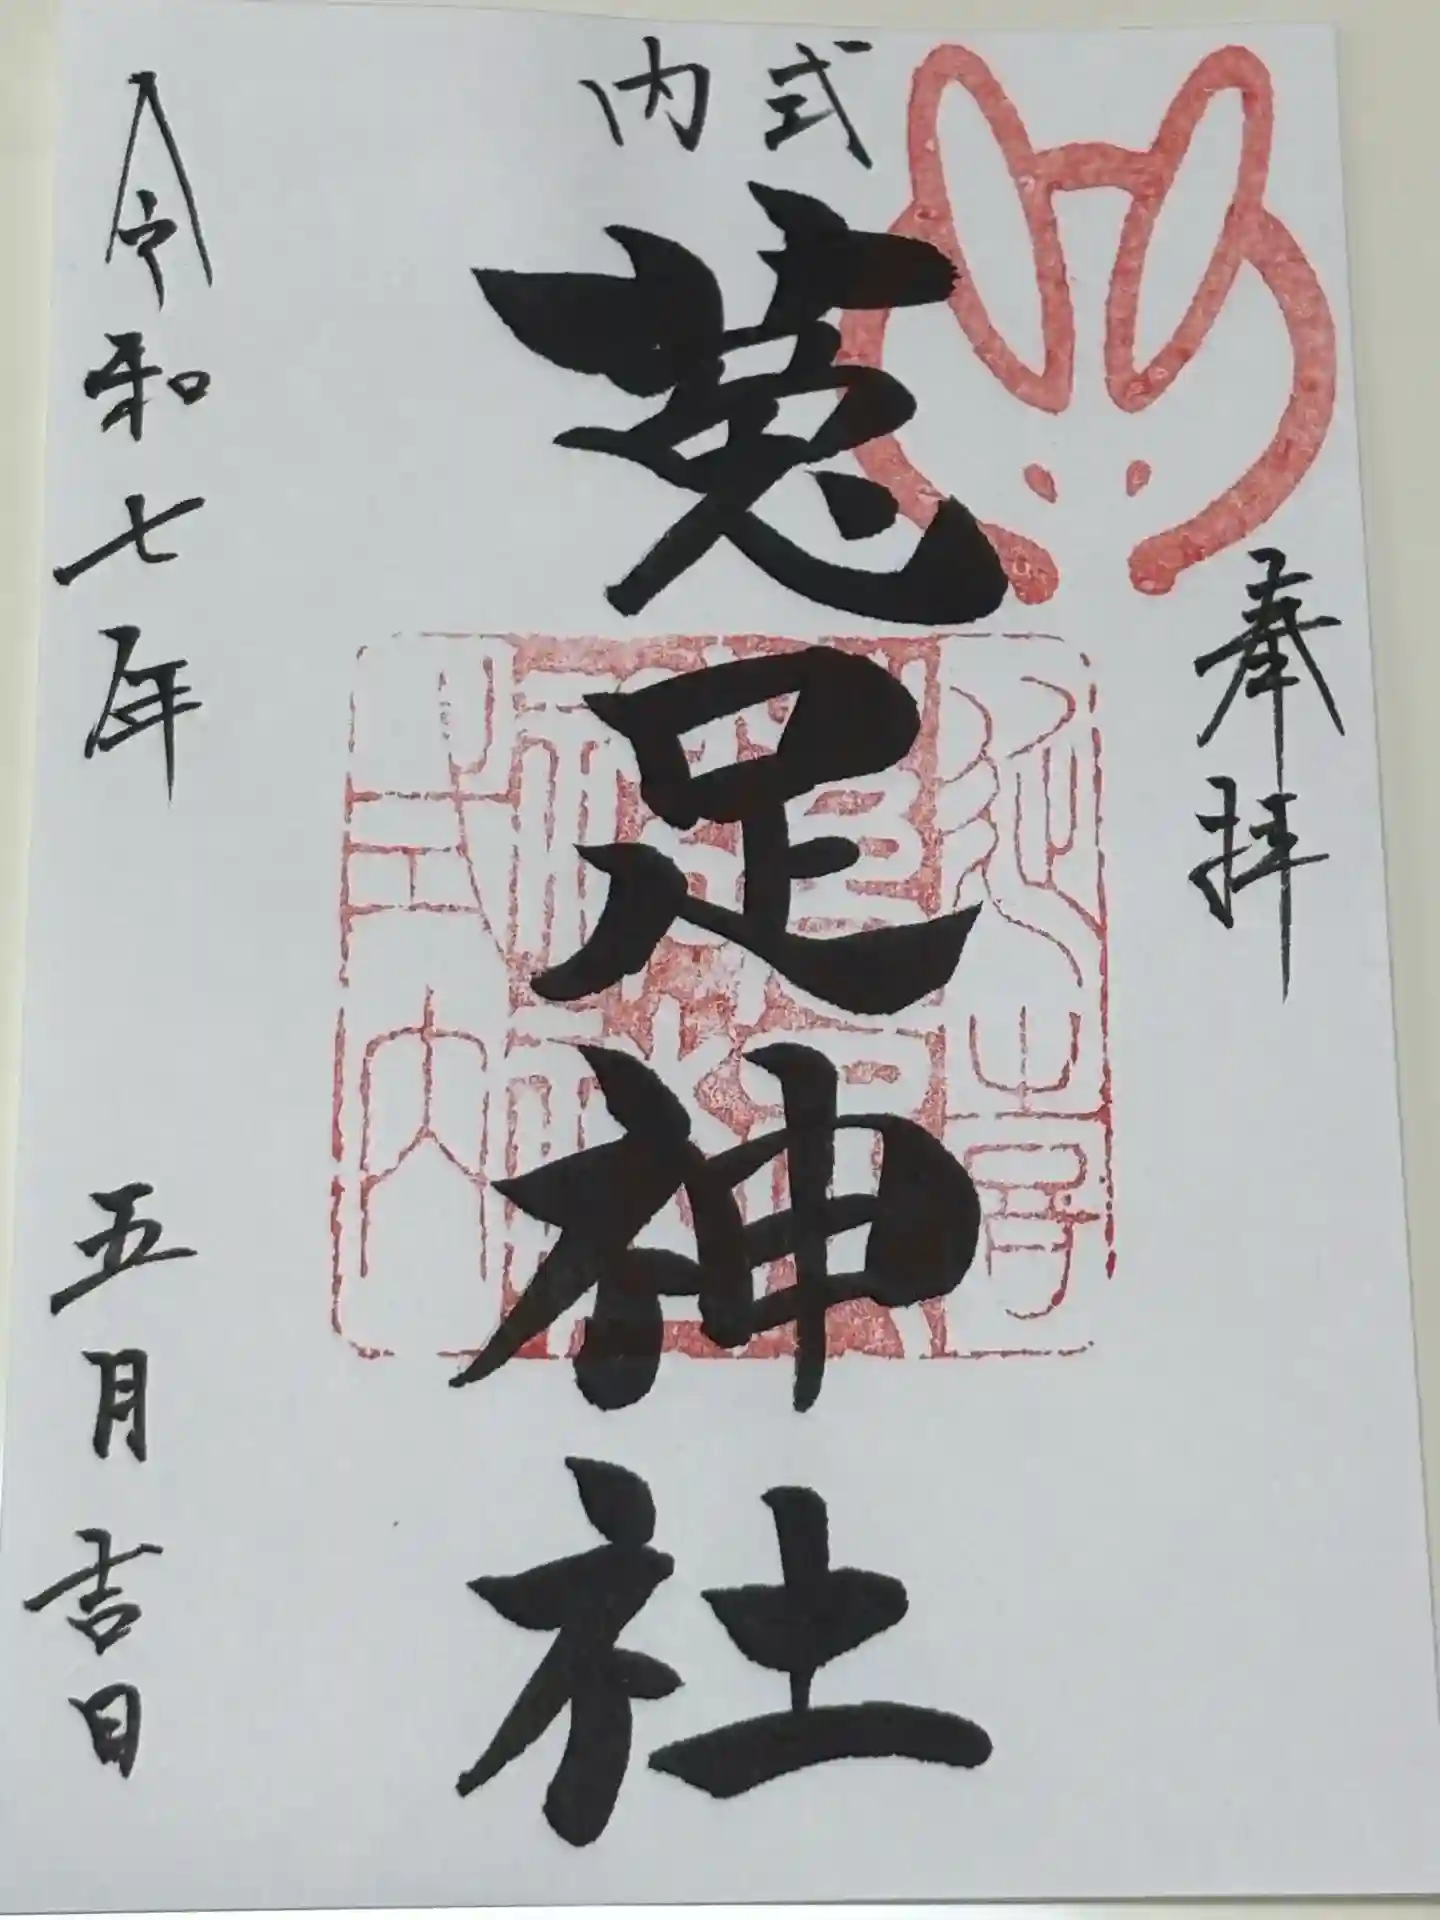 奉拝
式内
菟足神社
令和七年 五月吉日